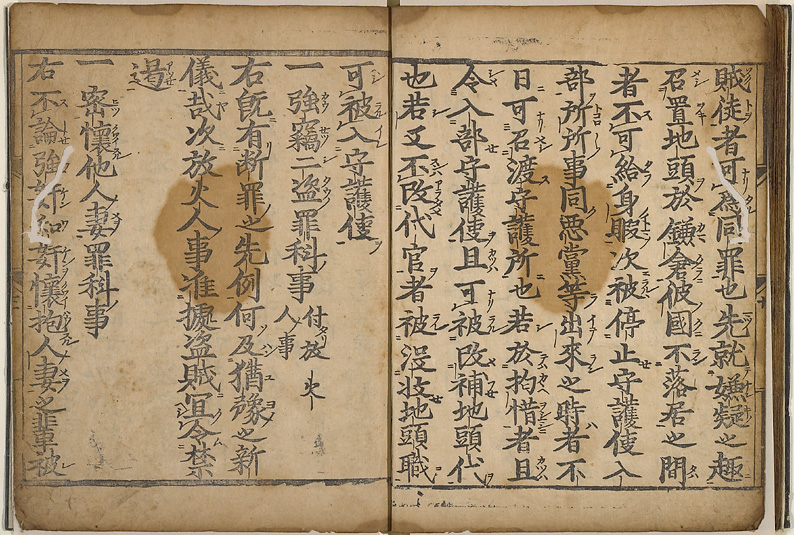 賊徒者可為同罪也先就嫌疑之趣
召置地頭於鎌倉彼國不落居之間
者不可給身暇次被停止守護使入
部所所事同惡黨等出來之時者不
日可召渡守護所也若於拘惜者且
令入部守護使且可被改補地頭代
也若又不改代官者被没收地頭職
可被入守護使
一 強竊二盗罪科事 付放火人事
右既有断罪之先例何及猶豫之新
儀哉次放火人事准據盗賊冝令禁
遏
一 密懷他人妻罪科事
右不論強奸和奸懷抱人妻之輩被